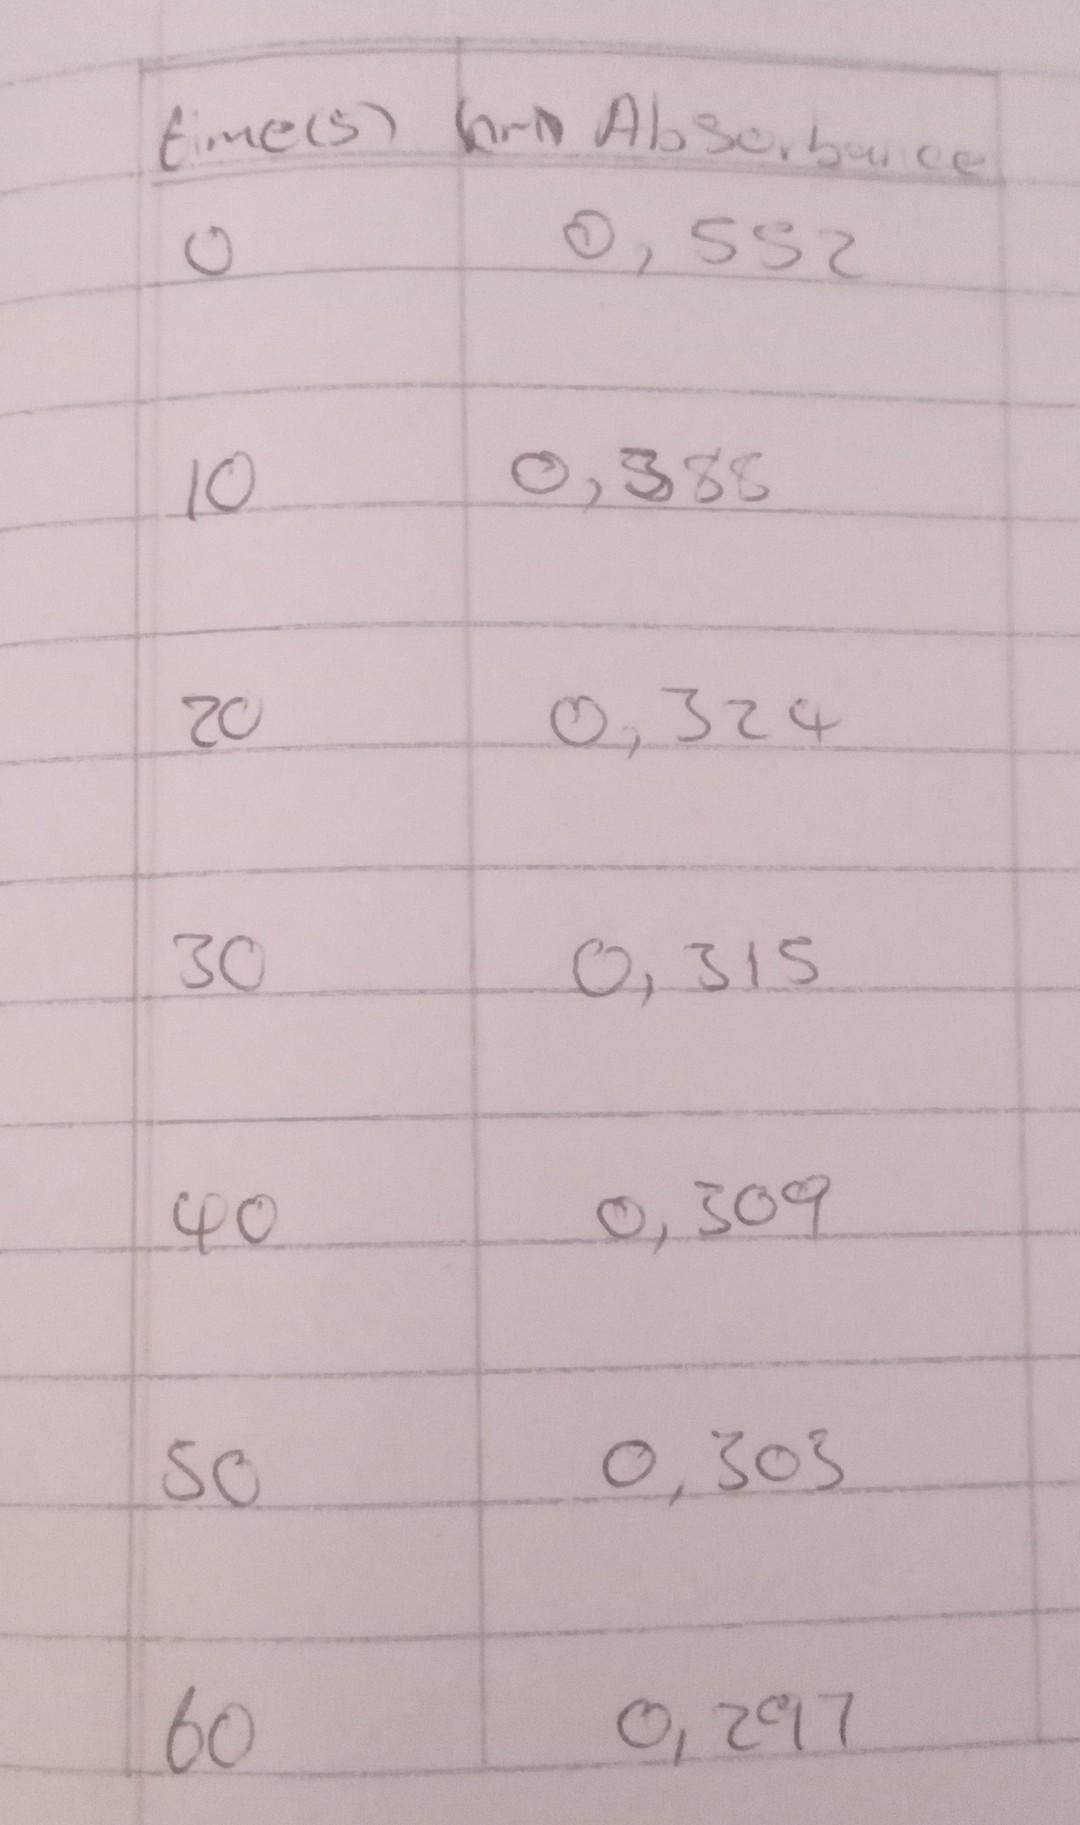 time(s) Absorbance
0 0,552
10 0,388
20 0,324
30 0,315
40 0,309
50 0,303
60 0,297